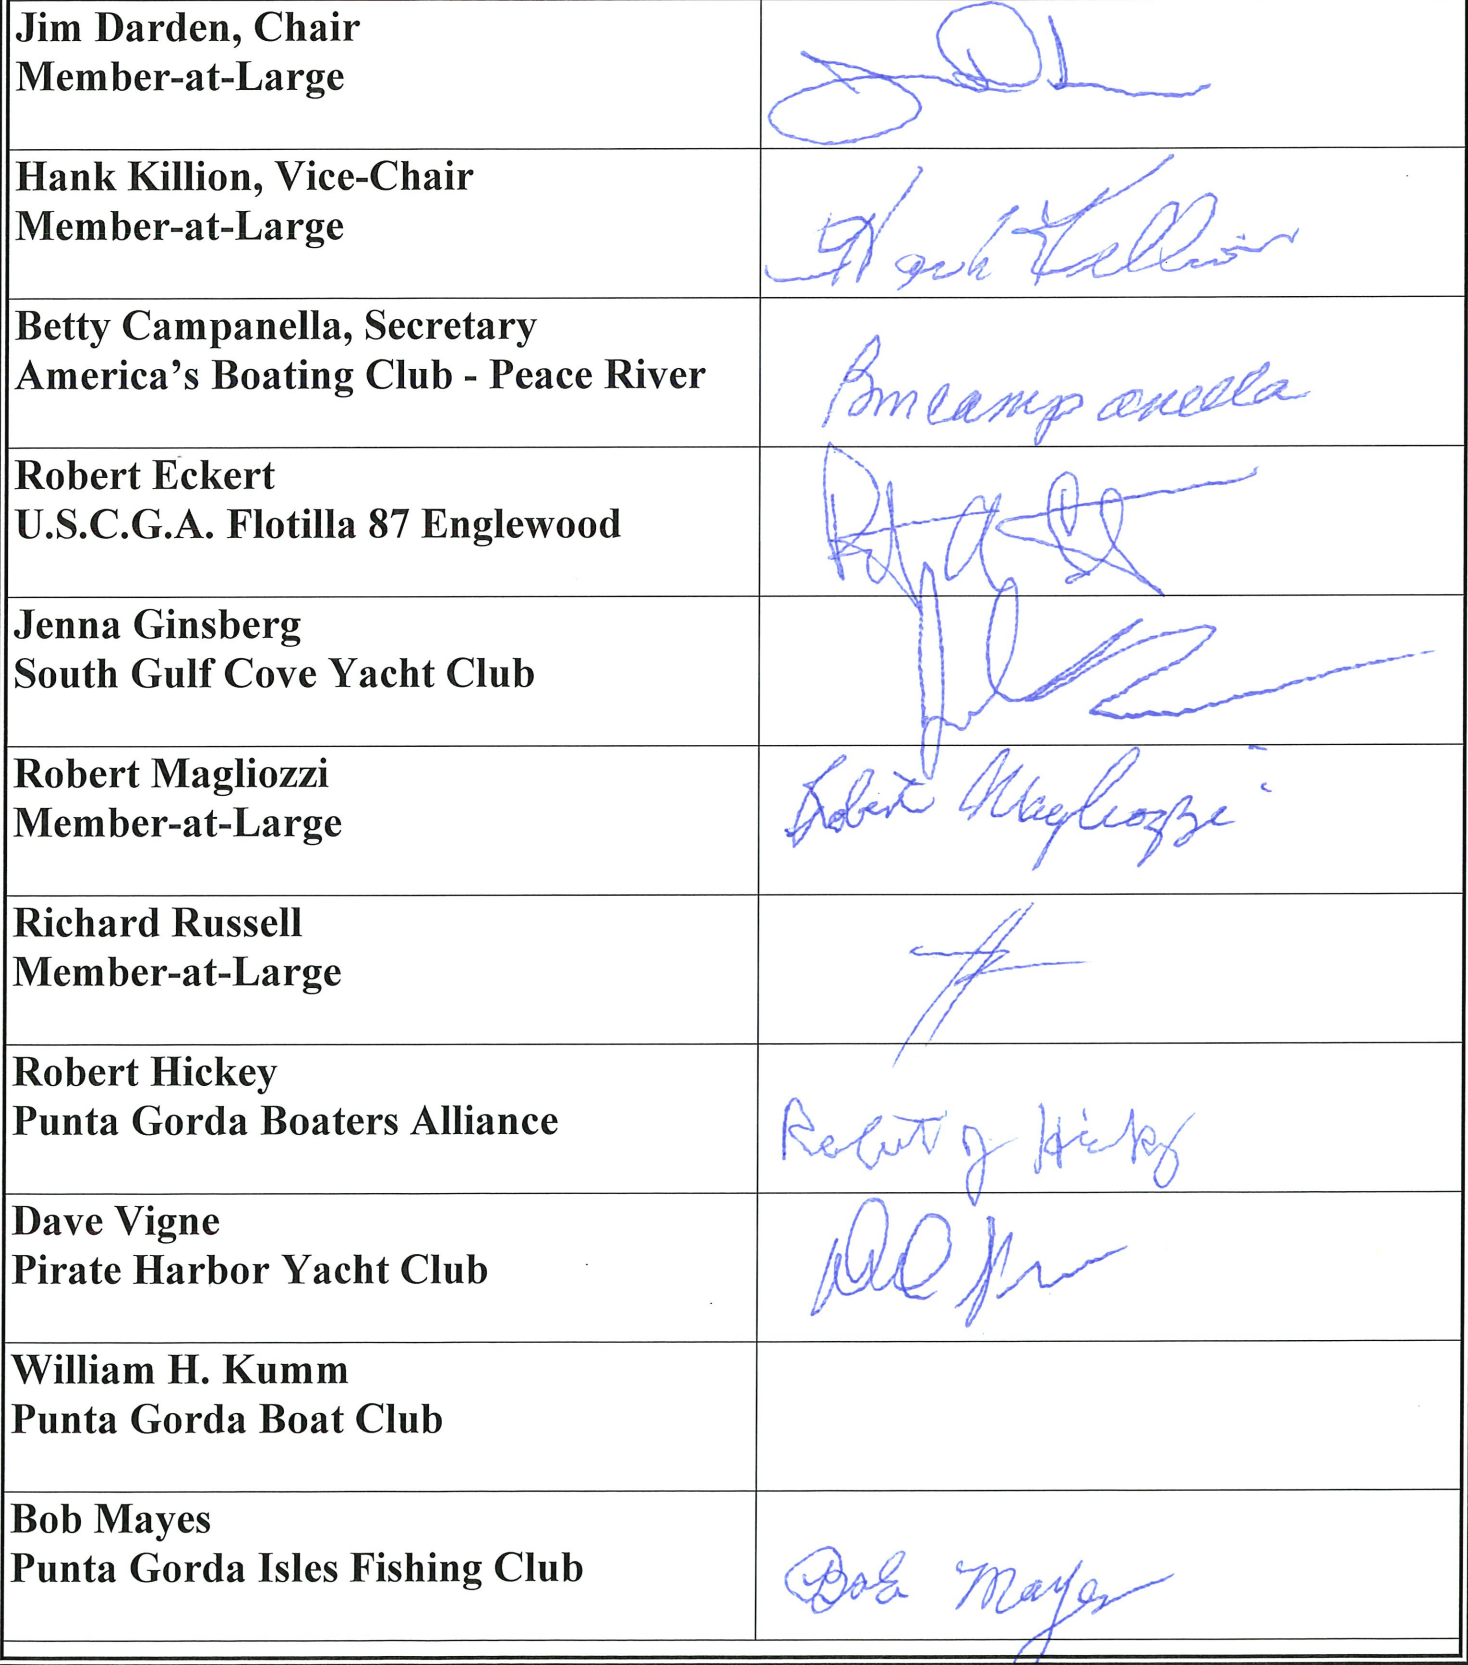 Jim Darden, Chair
Member-at-Large
Hank Killion, Vice-Chair
Member-at-Large
Hank Killion
Betty Campanella, Secretary
America's Boating Club - Peace River
Bmcampanella
Robert Eckert
U.S.C.G.A. Flotilla 87 Englewood
Jenna Ginsberg
South Gulf Cove Yacht Club
Robert Magliozzi
Member-at-Large
Robert Magliozzi
Richard Russell
Member-at-Large
Robert Hickey
Punta Gorda Boaters Alliance
Robert J Hickey
Dave Vigne
Pirate Harbor Yacht Club
William H. Kumm
Punta Gorda Boat Club
Bob Mayes
Punta Gorda Isles Fishing Club
Bob Mayes